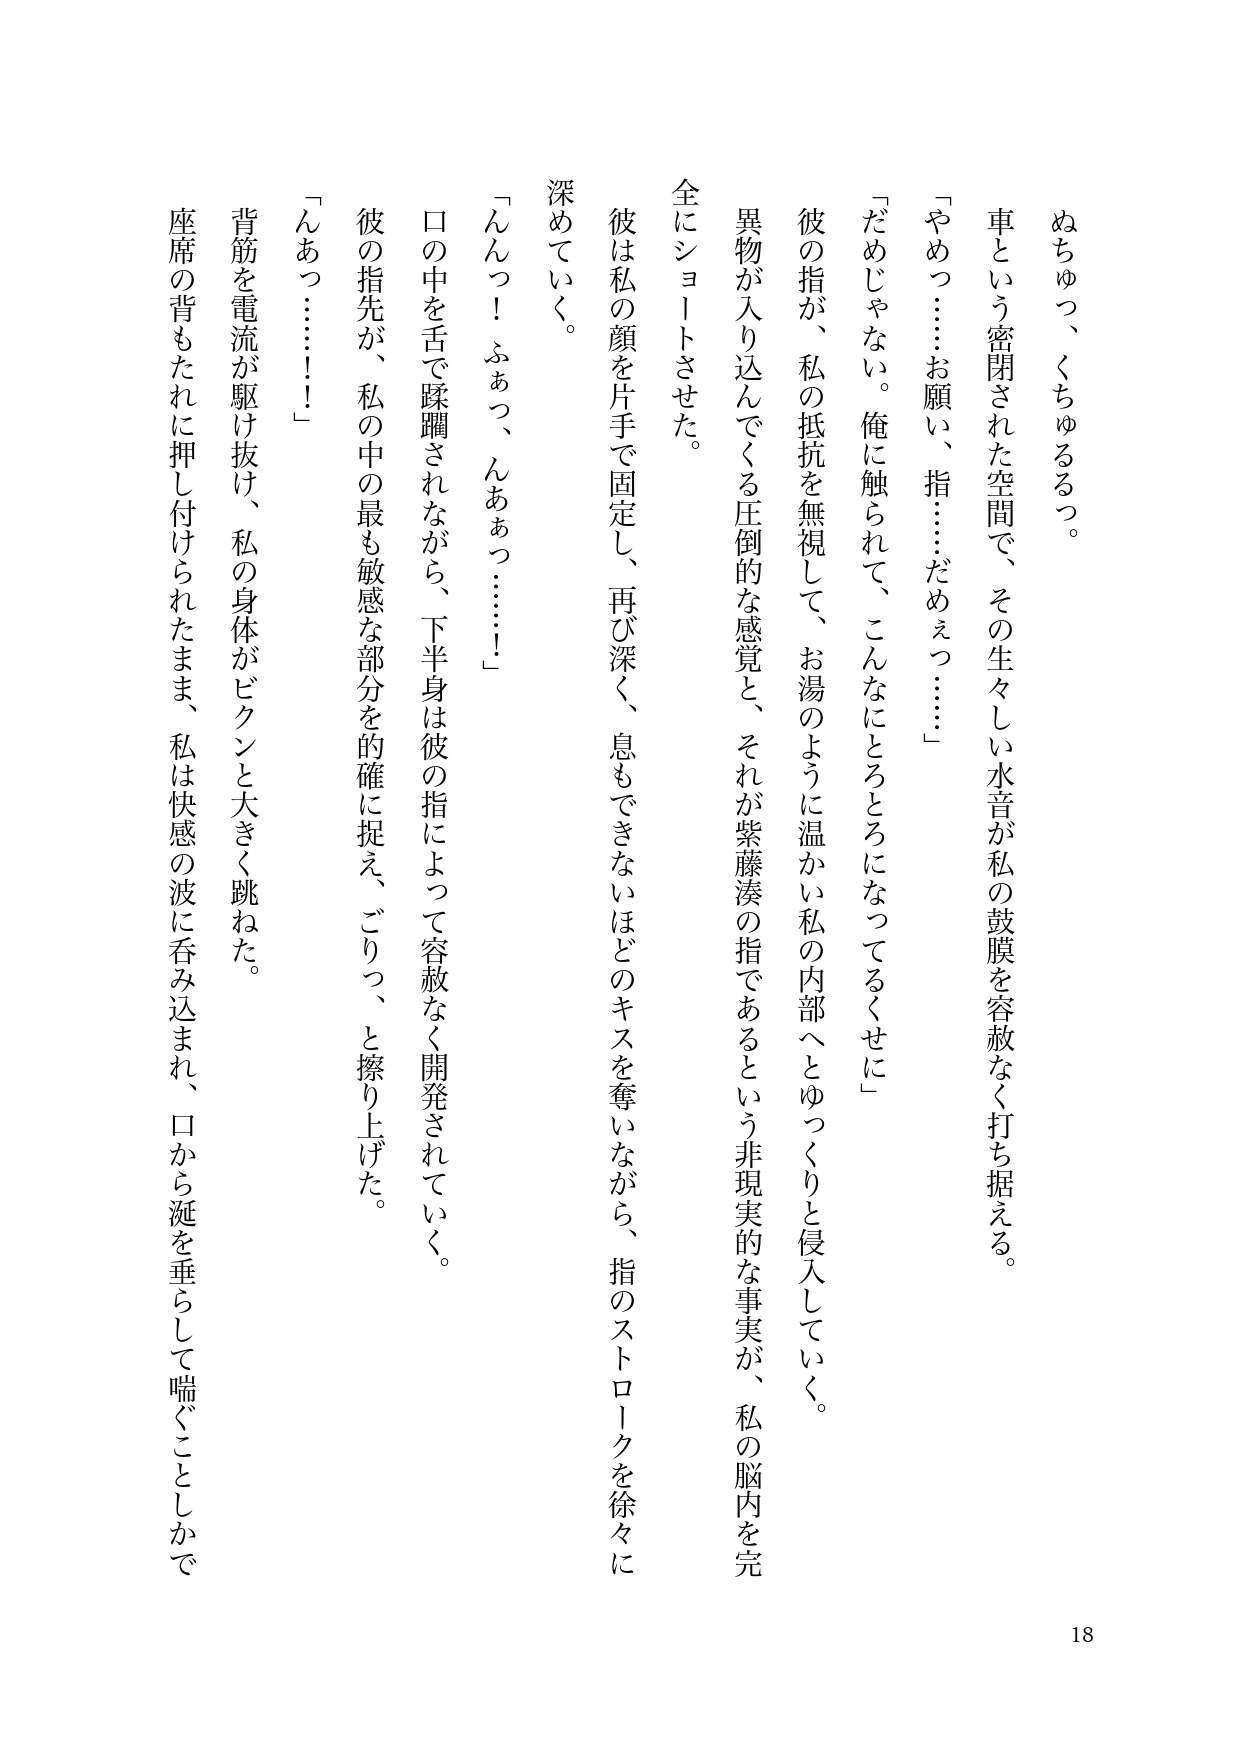 ぬちゅっ、くちゅるるっ。
車という密閉された空間で、その生々しい水音が私の鼓膜を容赦なく打ち据える。
「やめっ……お願い、指……だめぇっ……」
「だめじゃない。俺に触られて、こんなにとろとろになってるくせに」
彼の指が、私の抵抗を無視して、お湯のように温かい私の内部へとゆっくりと侵入していく。
異物が入り込んでくる圧倒的な感覚と、それが紫藤湊の指であるという非現実的な事実が、私の脳内を完
全にショートさせた。
彼は私の顔を片手で固定し、再び深く、息もできないほどのキスを奪いながら、指のストロークを徐々に
深めていく。
「んんっ！ ふぁっ、んあぁっ……！」
口の中を舌で蹂躙されながら、下半身は彼の指によって容赦なく開発されていく。
彼の指先が、私の中の最も敏感な部分を的確に捉え、ごりっ、と擦り上げた。
「んあっ……！！」
背筋を電流が駆け抜け、私の身体がビクンと大きく跳ねた。
座席の背もたれに押し付けられたまま、私は快感の波に呑み込まれ、口から涎を垂らして喘ぐことしかで
18